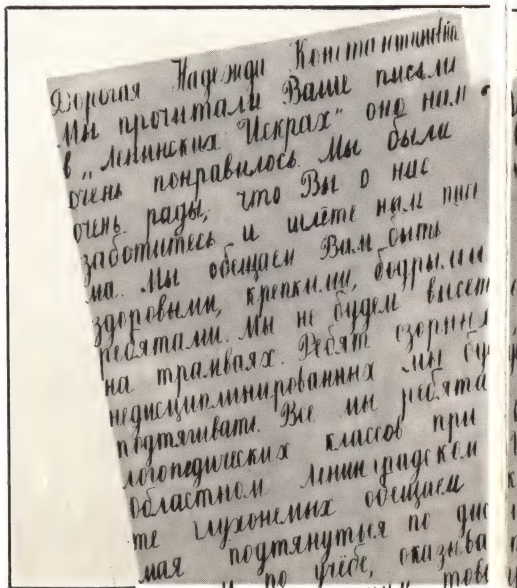 Дорогая Надежда Константиновна
Мы прочитали Ваше письмо
в „Ленинских Искрах" оно нам
очень понравилось. Мы были
очень рады, что Вы о нас
заботитесь и шлёте нам пи
ма. Мы обещаем Вам быть
здоровыми, крепкими, бодрыми
ребятами. Мы не будем висеть
на трамваях. Ребят озорных,
недисциплинированных мы бу
подтягивать. Все мы ребята
логопедических классов при
областном Ленинградском
те глухонемых обещаем
мая подтянутья по дис
и по учёбе, оказыва
тов